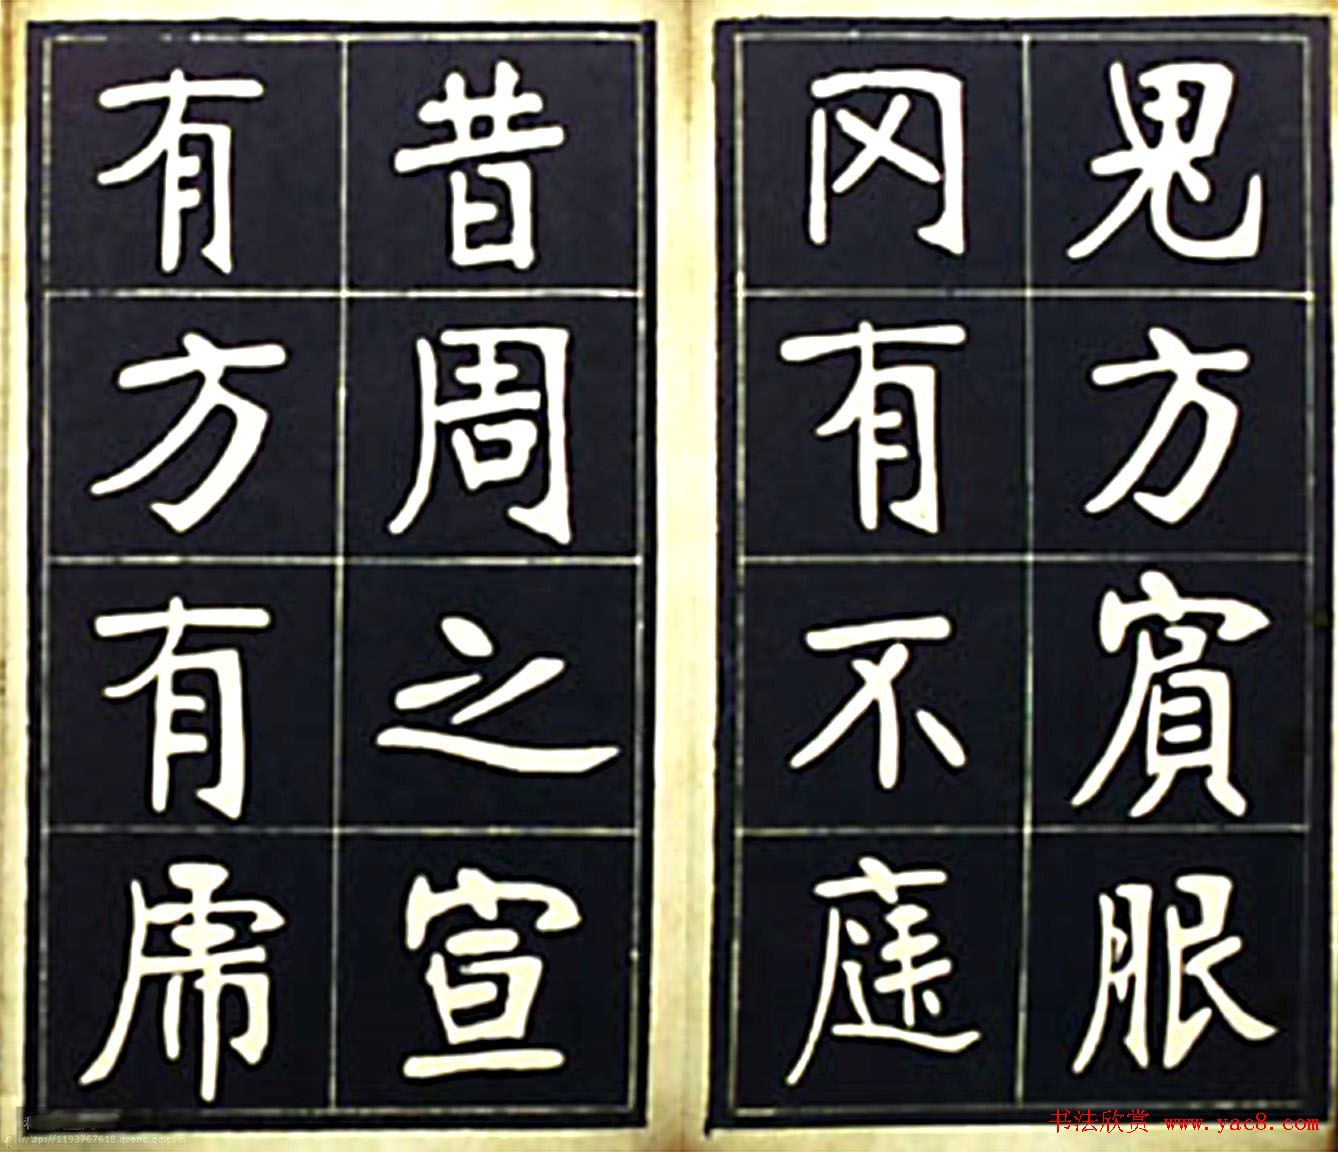 鬼方賓服
冈有不庭
昔周之宣
有方有虎
书法欣赏 www.yac8.com
http://1193767618.qzone.qq.com